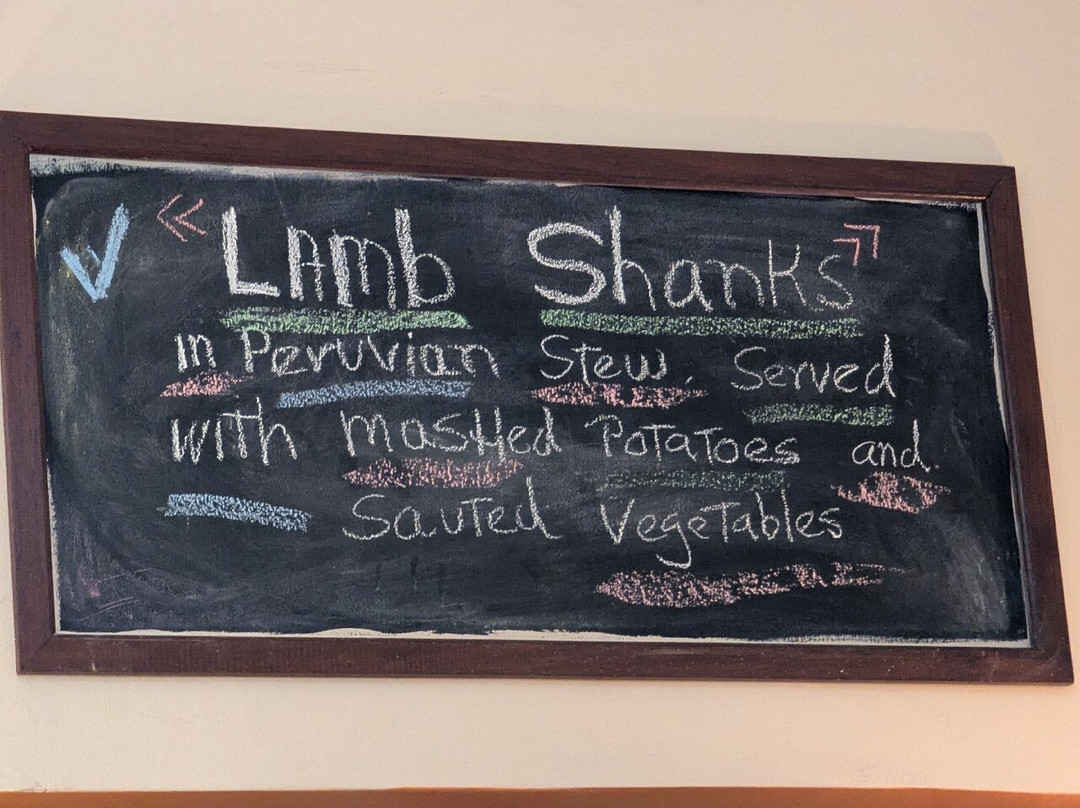 « Lamb Shanks »
in Peruvian Stew. Served
with mashed Potatoes and.
Sauted Vegetables